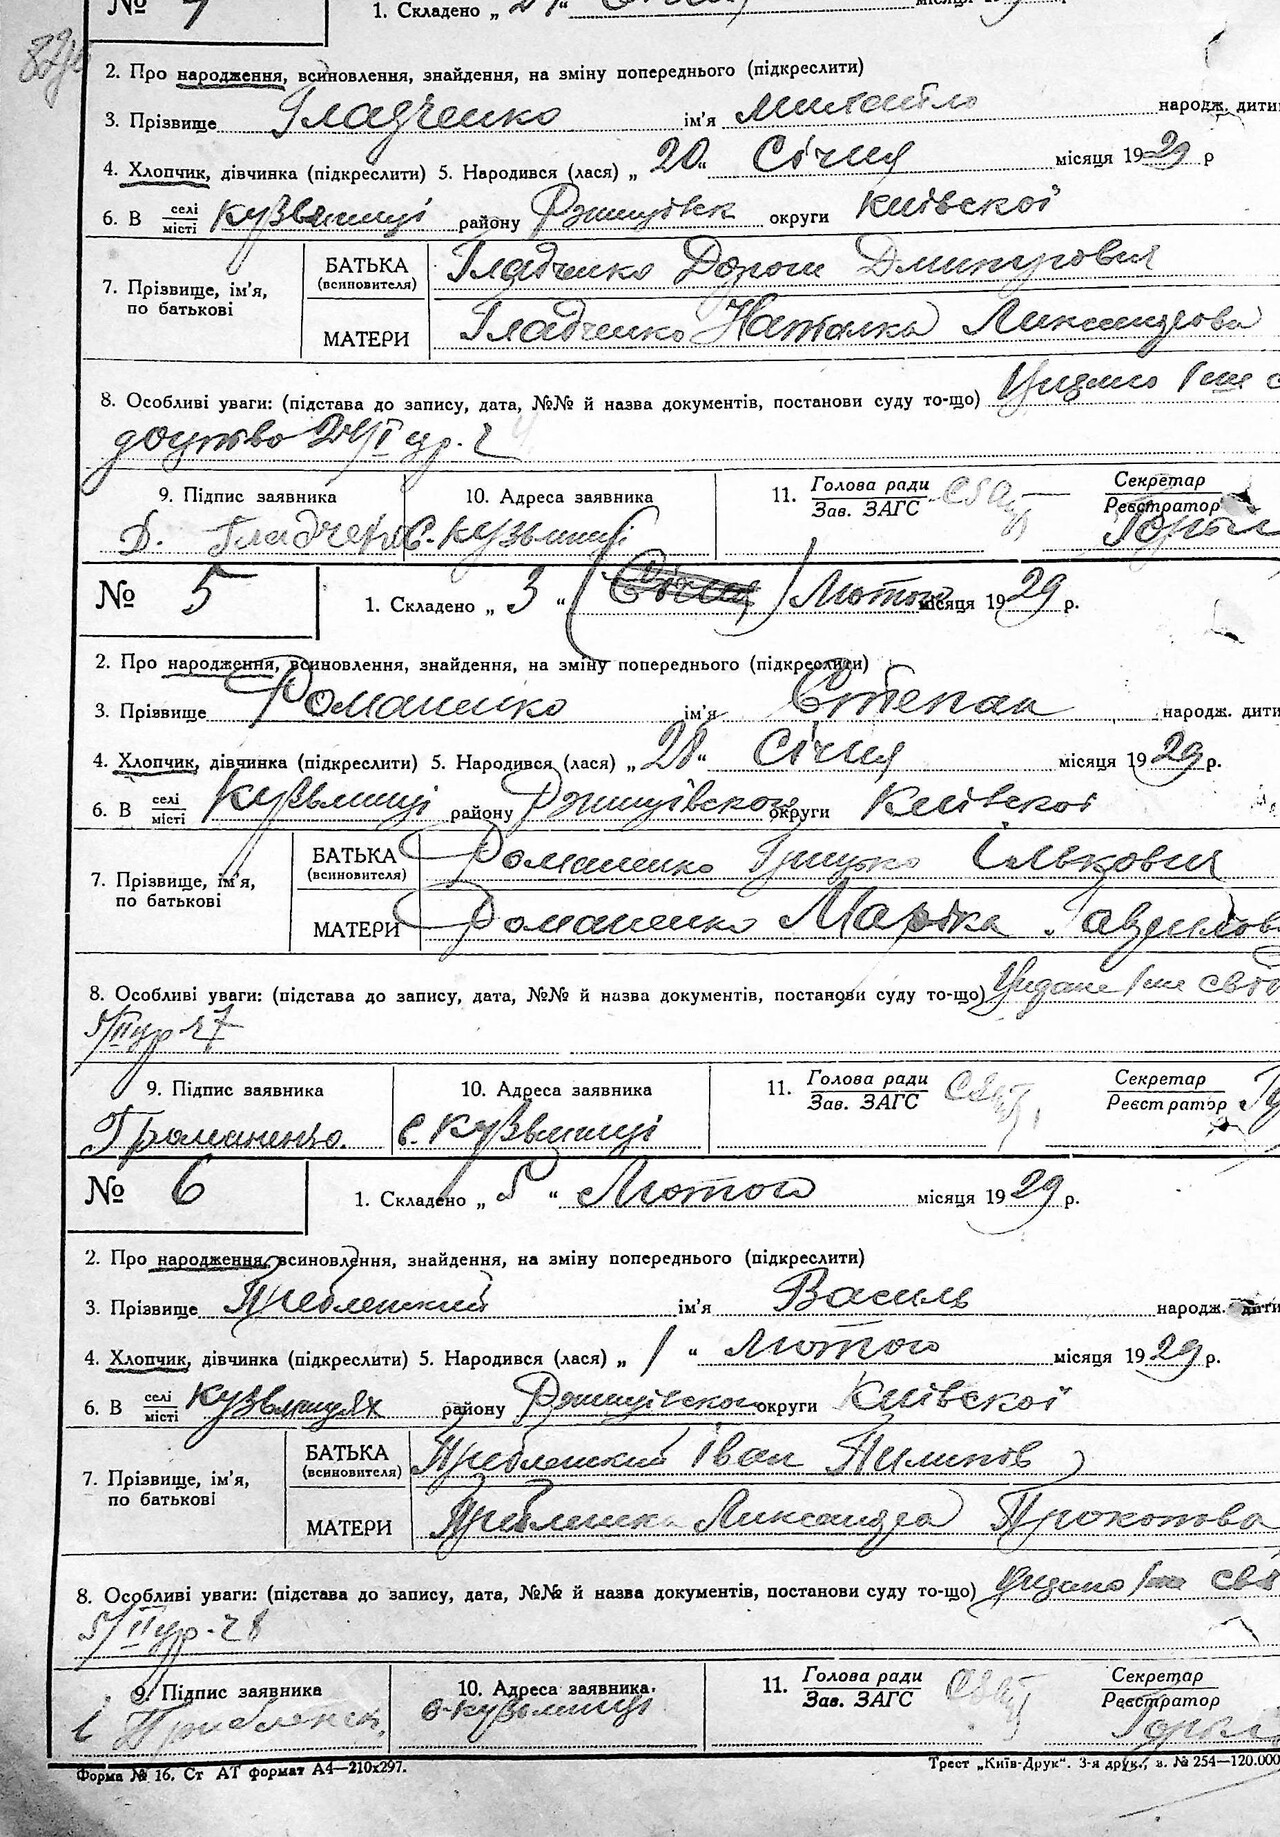 № 4 1. Складено „ 24 “ Січня місяця 19
2. Про народження, всиновлення, знайдення, на зміну попереднього (підкреслити)
3. Прізвище Гладченко ім'я Михайло народж. дити
4. Хлопчик, дівчинка (підкреслити) 5. Народився (лася) „ 20 “ Січня місяця 1929 р
6. В селі/місті Кузьминці району Ржищівськ округи Київської
7. Прізвище, ім'я, по батькові
БАТЬКА (всиновителя) Гладченко Дмитрович
МАТЕРИ Гладченко Наталка Лександрова
8. Особливі уваги: (підстава до запису, дата, №№ й назва документів, постанови суду то-що)
9. Підпис заявника 10. Адреса заявника 11. Голова ради/Зав. ЗАГС Секретар/Реєстратор
Д. Гладченко с. Кузьминці
№ 5 1. Складено „ 3 “ (Січня) Лютого місяця 1929 р.
2. Про народження, всиновлення, знайдення, на зміну попереднього (підкреслити)
3. Прізвище Романенко ім'я Степан народж. дити
4. Хлопчик, дівчинка (підкреслити) 5. Народився (лася) „ 28 “ Січня місяця 1929 р.
6. В селі/місті Кузьминці району Ржищівського округи Київської
7. Прізвище, ім'я, по батькові
БАТЬКА (всиновителя) Романенко Грицько Ількович
МАТЕРИ Романенко Марійка Гаврилов
8. Особливі уваги: (підстава до запису, дата, №№ й назва документів, постанови суду то-що)
5/II
9. Підпис заявника 10. Адреса заявника 11. Голова ради/Зав. ЗАГС Секретар/Реєстратор
с. Кузьминці
№ 6 1. Складено „ 5 “ Лютого місяця 1929 р.
2. Про народження, всиновлення, знайдення, на зміну попереднього (підкреслити)
3. Прізвище ім'я Василь народж. дити
4. Хлопчик, дівчинка (підкреслити) 5. Народився (лася) „ 1 “ Лютого місяця 1929 р.
6. В селі/місті Кузьминцях району Ржищівського округи Київської
7. Прізвище, ім'я, по батькові
БАТЬКА (всиновителя) Іван Пилипів
МАТЕРИ Лександра Прокопова
8. Особливі уваги: (підстава до запису, дата, №№ й назва документів, постанови суду то-що)
5/II
9. Підпис заявника 10. Адреса заявника 11. Голова ради/Зав. ЗАГС Секретар/Реєстратор
с. Кузьминці
Форма № 16. Ст АТ формат А4—210x297. Трест „Київ-Друк“. 3-я друк., з. № 254—120.000